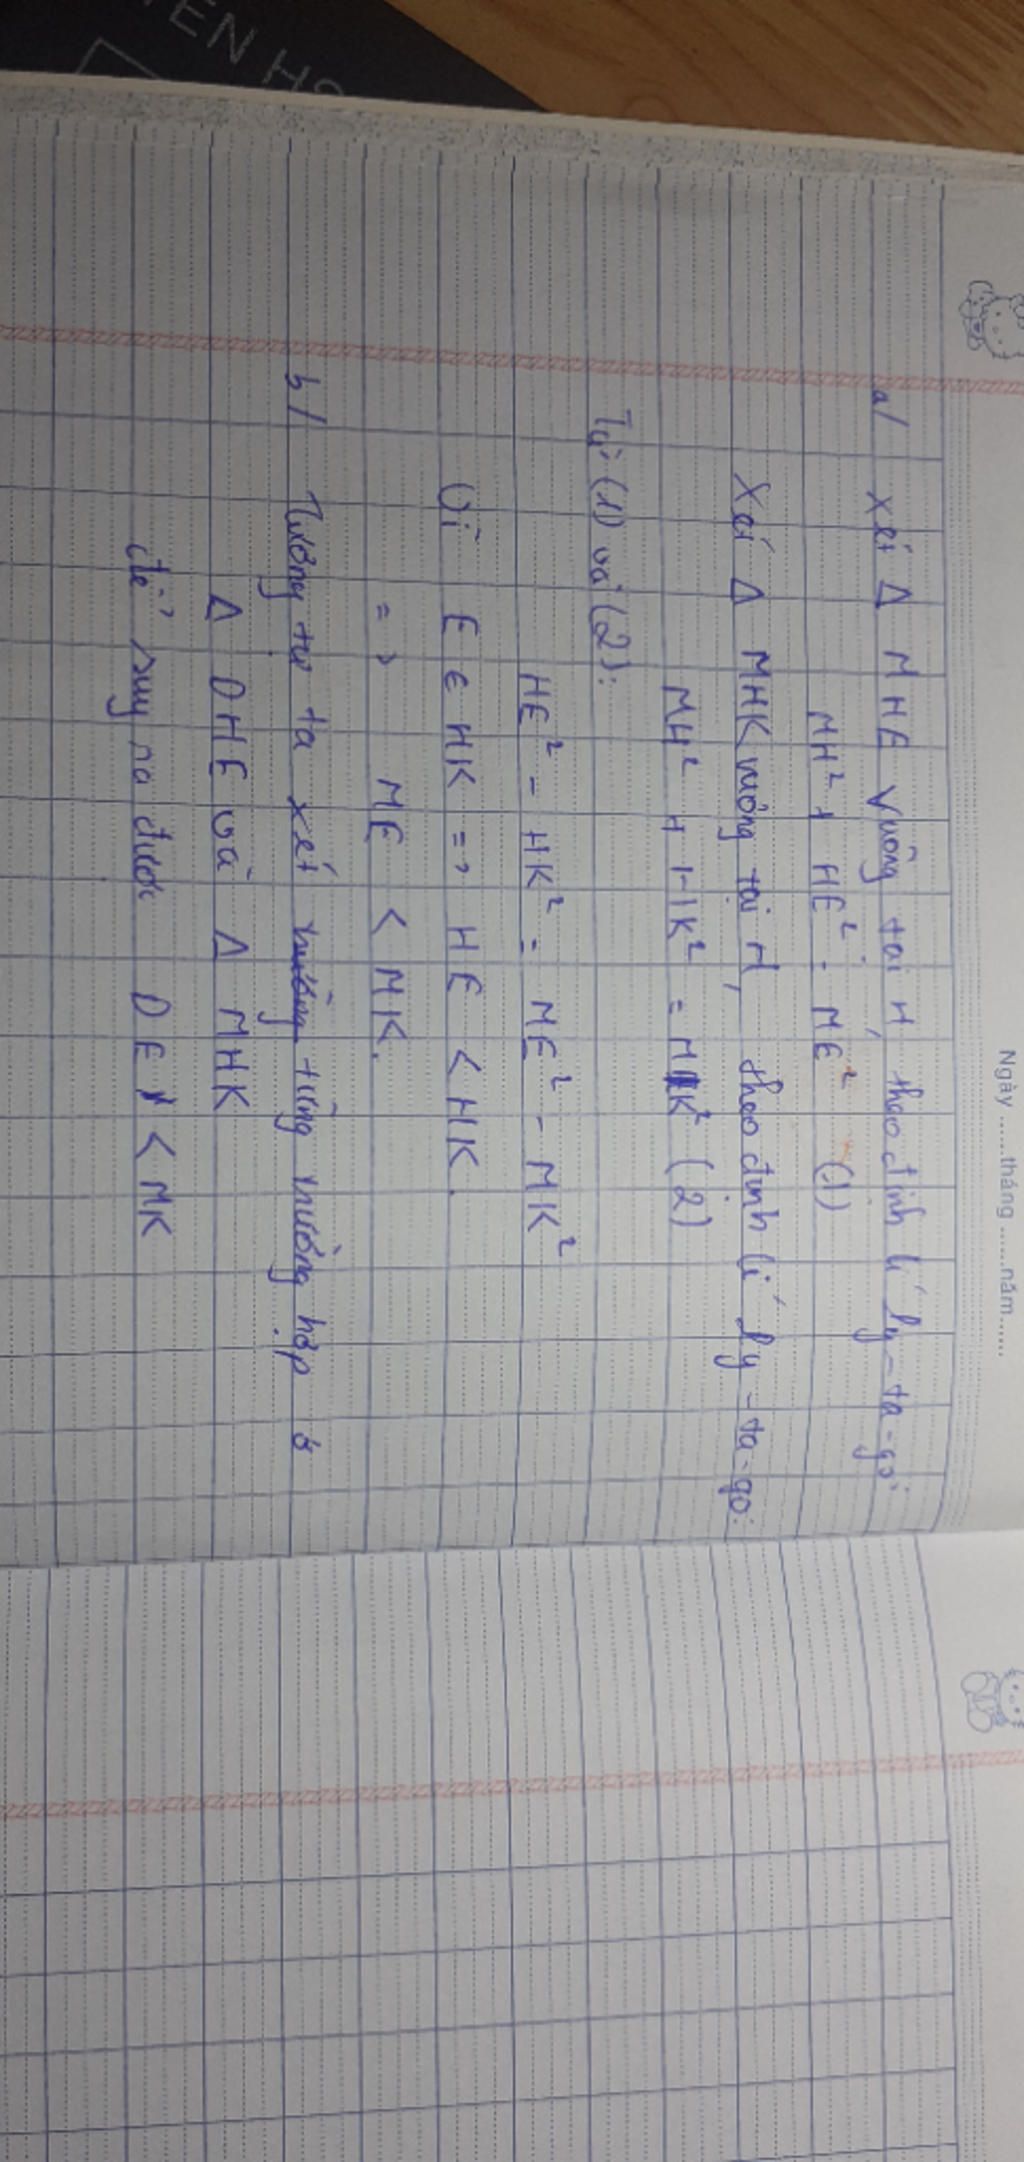 YEN HS
Ngày ......tháng ......năm......
a/ Xét Δ MHE vuông tại H, theo định lí Py-ta-go:
MH² + HE² = ME² (1)
Xét Δ MHK vuông tại H, theo định lí Py-ta-go:
MH² + HK² = MK² (2)
Từ (1) và (2):
HE² - HK² = ME² - MK²
Vì E ∈ HK => HE < HK.
=> ME < MK.
b/ Tương tự ta xét từng trường hợp ở
Δ DHE và Δ MHK
để suy ra được DE < MK